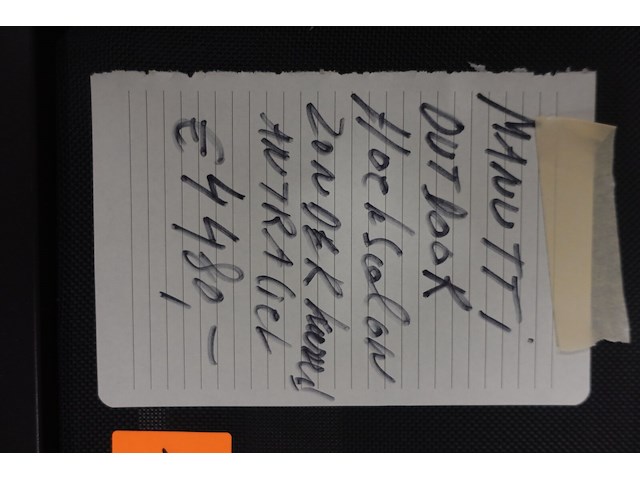 MANUTTI
OUTDOOR
HOEKSALON
ZONDER
ANTRACIET
€ 4 480,-